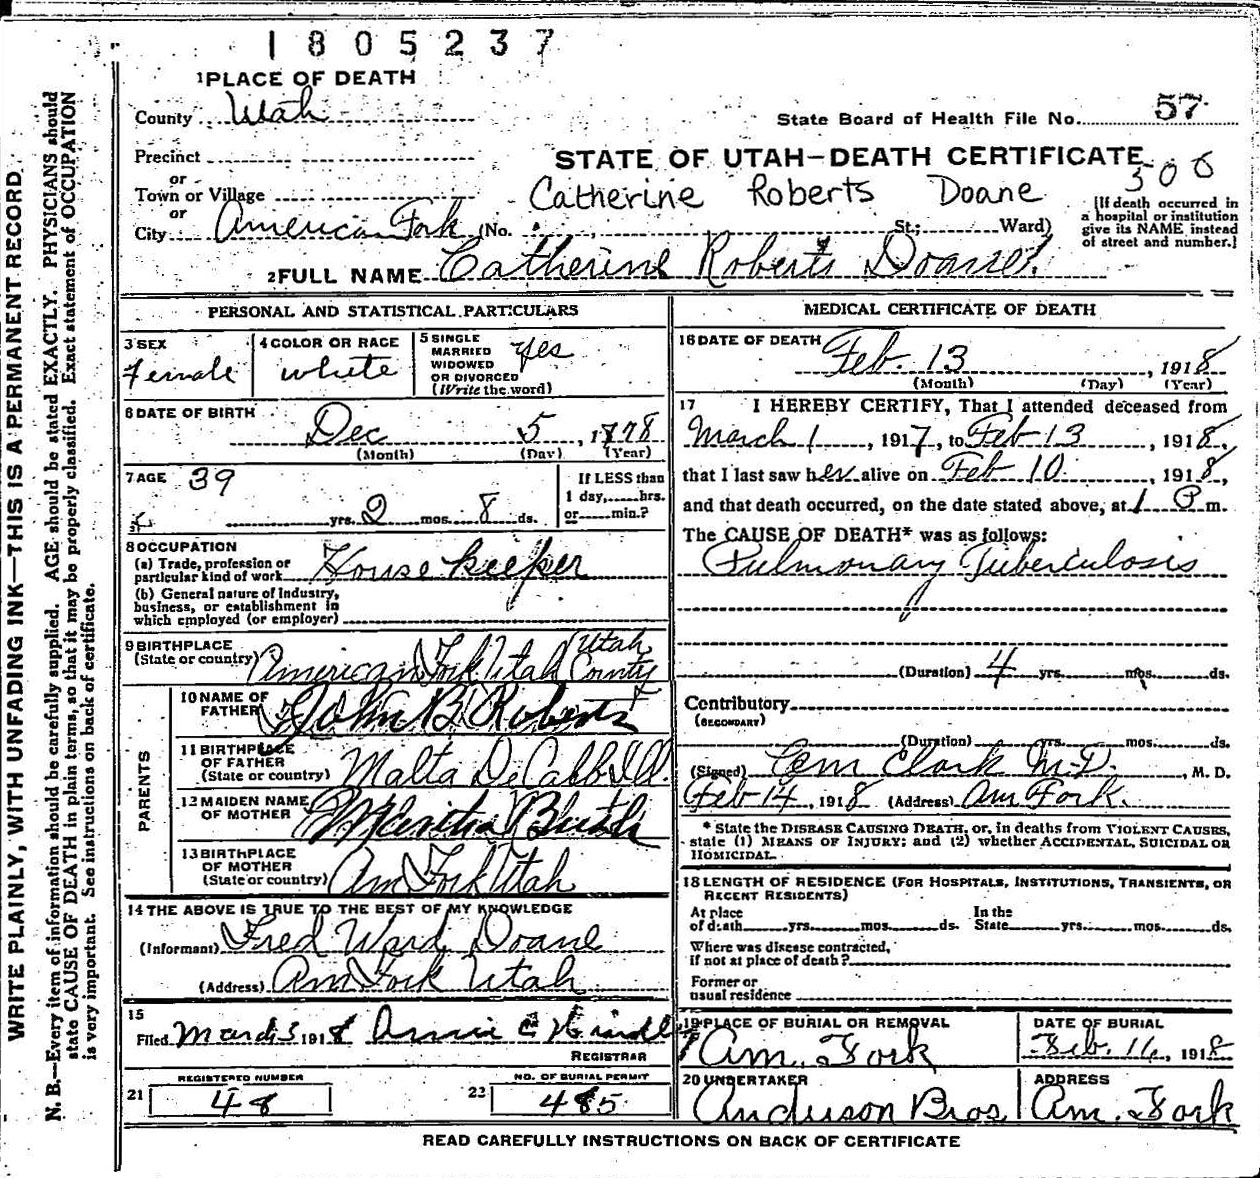 1805237
1 PLACE OF DEATH
County Utah
State Board of Health File No. 57
Precinct
STATE OF UTAH—DEATH CERTIFICATE
506
or
Town or Village
Catherine Roberts Doane
or
City American Fork (No. St.; Ward)
[If death occurred in a hospital or institution give its NAME instead of street and number.]
2 FULL NAME Catherine Roberts Doane
PERSONAL AND STATISTICAL PARTICULARS
3 SEX
female
4 COLOR OR RACE
white
5 SINGLE
MARRIED
WIDOWED
OR DIVORCED
(Write the word)
yes
6 DATE OF BIRTH
Dec 5, 1878
(Month) (Day) (Year)
7 AGE 39
yrs. 2 mos. 8 ds.
If LESS than
1 day, hrs.
or min.?
8 OCCUPATION
(a) Trade, profession or
particular kind of work House keeper
(b) General nature of Industry,
business, or establishment in
which employed (or employer)
9 BIRTHPLACE
(State or country) American Fork Utah Utah County
PARENTS
10 NAME OF
FATHER John B Roberts
11 BIRTHPLACE
OF FATHER
(State or country) Malta
12 MAIDEN NAME
OF MOTHER
13 BIRTHPLACE
OF MOTHER
(State or country) Am Fork Utah
14 THE ABOVE IS TRUE TO THE BEST OF MY KNOWLEDGE
(Informant) Fred Ward Doane
(Address) Am Fork Utah
15
Filed 1918 Annie
REGISTRAR
21 REGISTERED NUMBER
48
22 NO. OF BURIAL PERMIT
485
MEDICAL CERTIFICATE OF DEATH
16 DATE OF DEATH
Feb. 13, 1918
(Month) (Day) (Year)
17 I HEREBY CERTIFY, That I attended deceased from
March 1, 1917, to Feb 13, 1918,
that I last saw her alive on Feb 10, 1918,
and that death occurred, on the date stated above, at 1 P m.
The CAUSE OF DEATH* was as follows:
Pulmonary Tuberculosis
(Duration) 4 yrs. mos. ds.
Contributory
(SECONDARY)
(Duration) yrs. mos. ds.
(Signed) Clark M.D., M. D.
Feb 14, 1918 (Address) Am Fork.
* State the DISEASE CAUSING DEATH, or, in deaths from VIOLENT CAUSES,
state (1) MEANS OF INJURY; and (2) whether ACCIDENTAL, SUICIDAL OR
HOMICIDAL.
18 LENGTH OF RESIDENCE (FOR HOSPITALS, INSTITUTIONS, TRANSIENTS, OR
RECENT RESIDENTS)
At place
of death yrs. mos. ds.
In the
State yrs. mos. ds.
Where was disease contracted,
if not at place of death?
Former or
usual residence
19 PLACE OF BURIAL OR REMOVAL
Am. Fork
DATE OF BURIAL
Feb. 16, 1918
20 UNDERTAKER
Anderson Bros
ADDRESS
Am. Fork
READ CAREFULLY INSTRUCTIONS ON BACK OF CERTIFICATE
WRITE PLAINLY, WITH UNFADING INK—THIS IS A PERMANENT RECORD.
N. B.—Every item of information should be carefully supplied. AGE should be stated EXACTLY. PHYSICIANS should
state CAUSE OF DEATH in plain terms, so that it may be properly classified. Exact statement of OCCUPATION
is very important. See instructions on back of certificate.